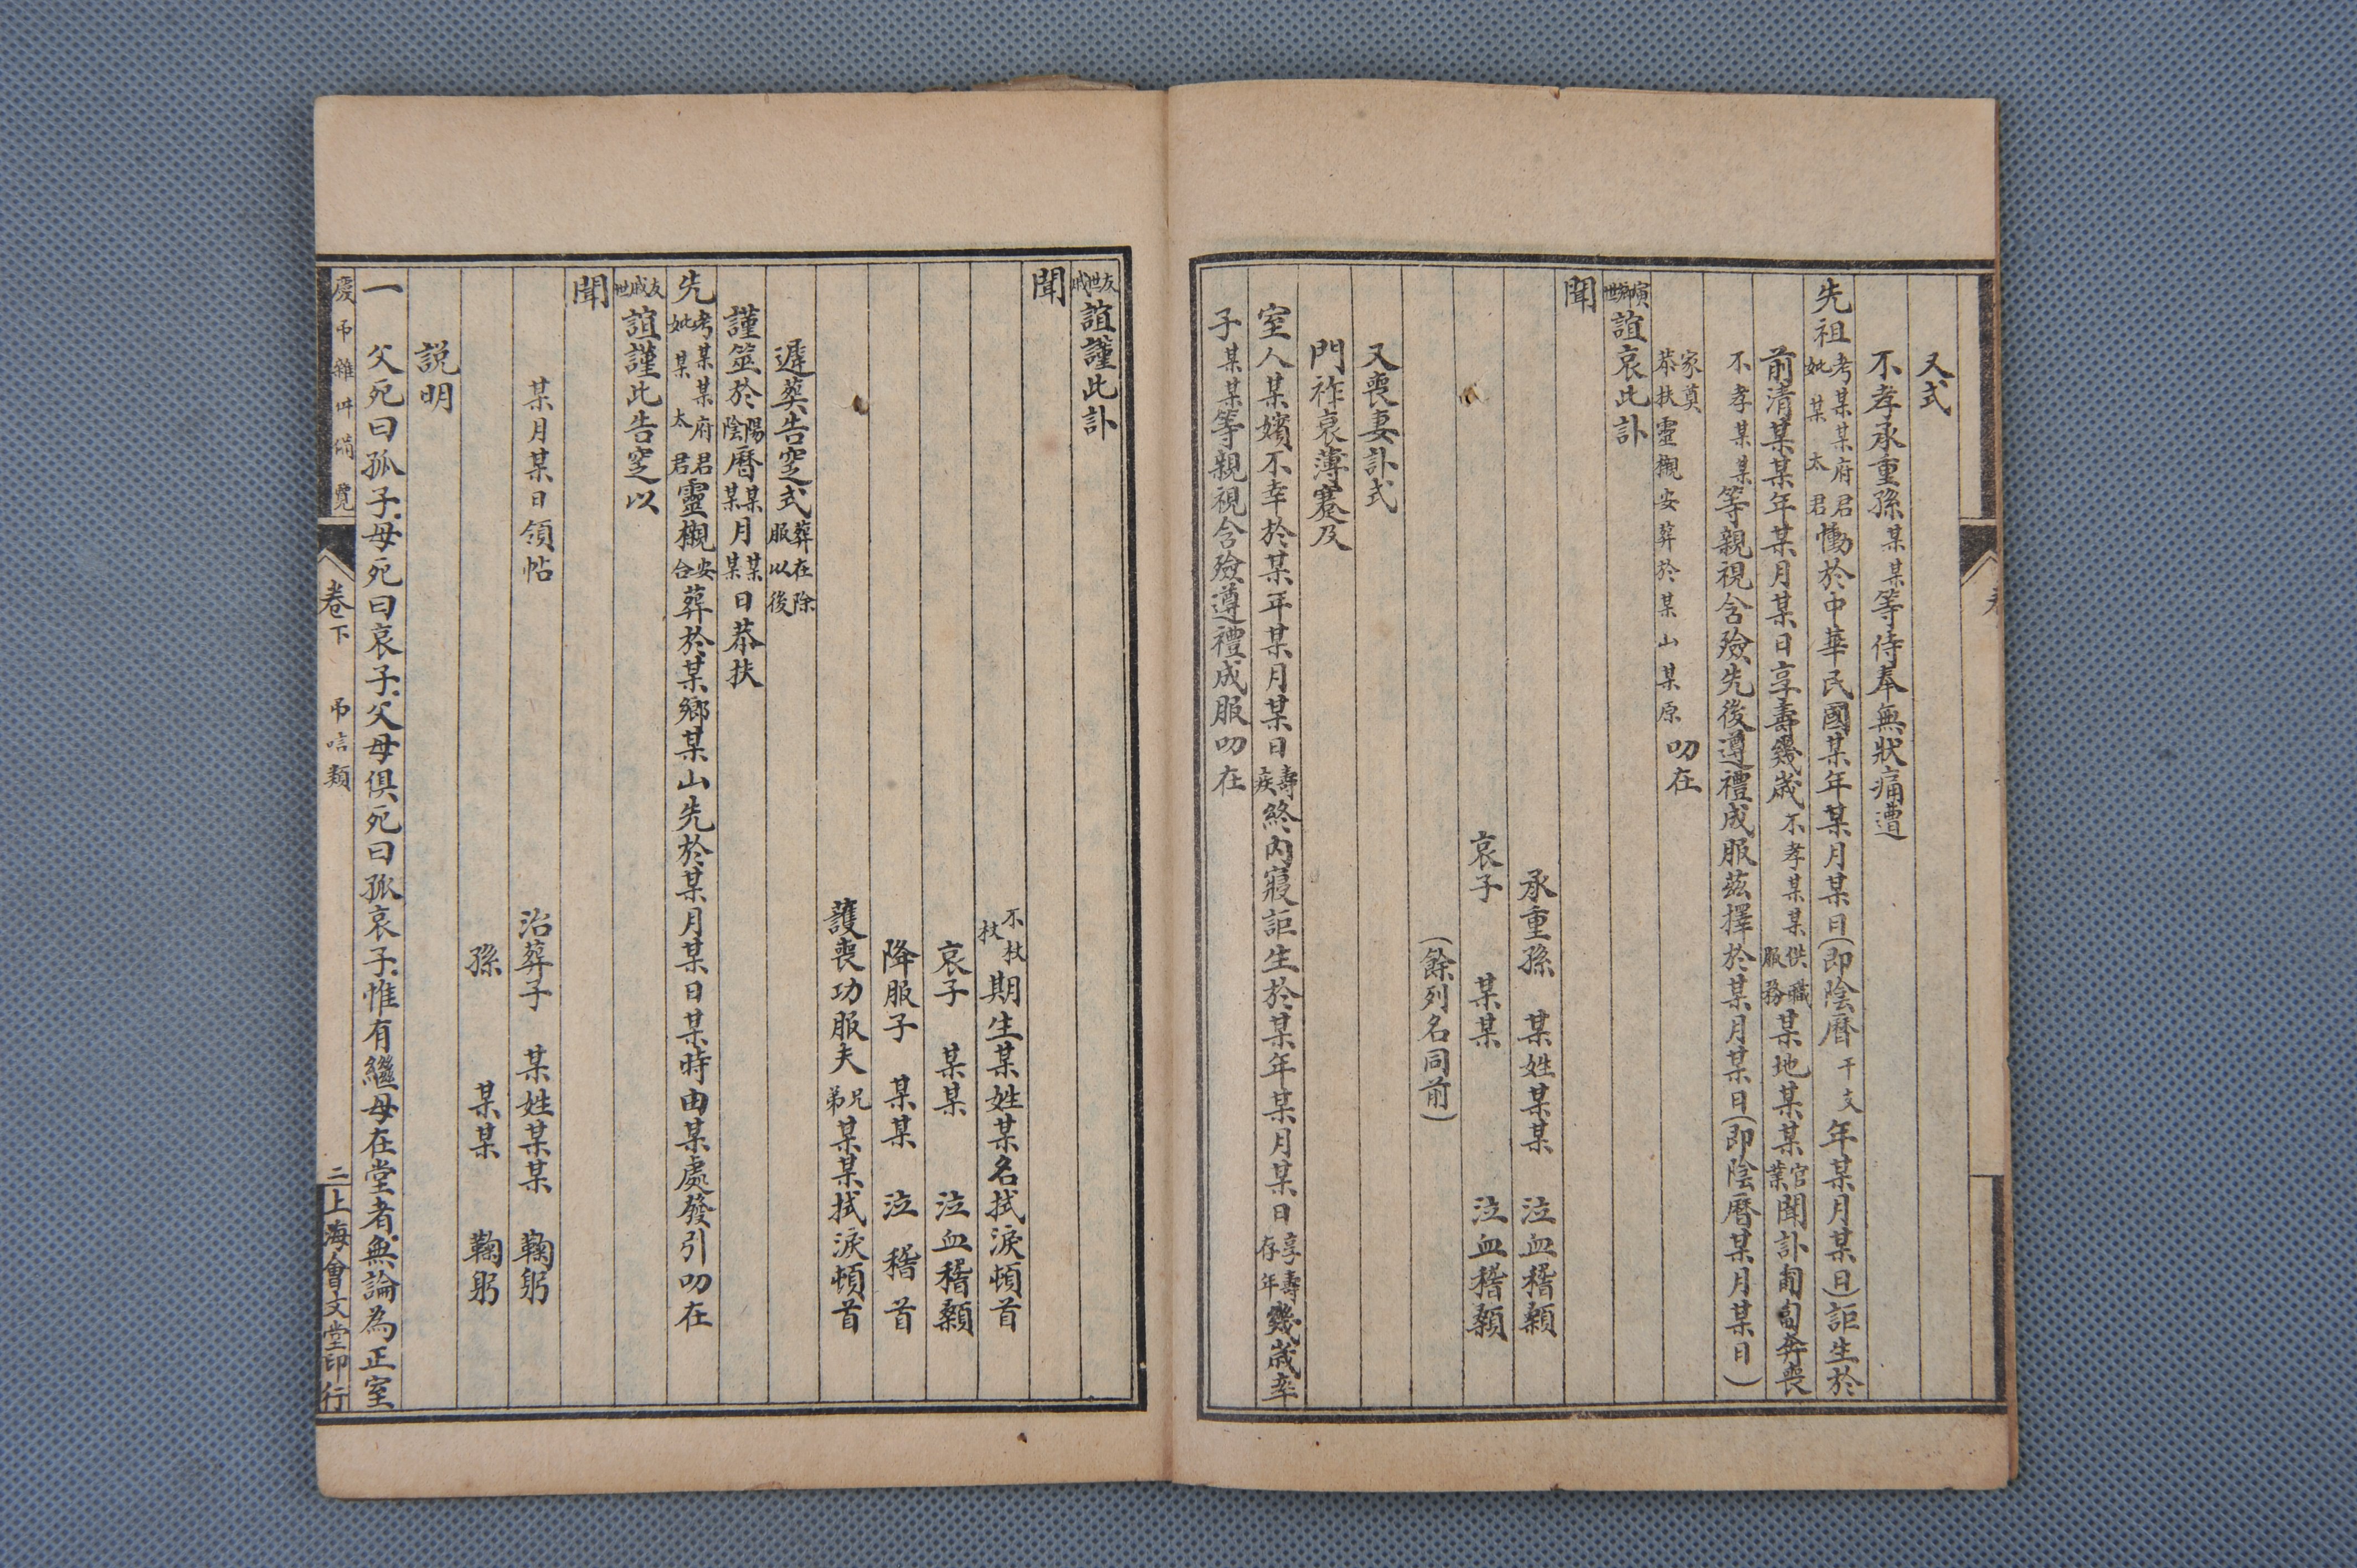 又式
不孝承重孫某某等侍奉無狀痛遭
先祖考某某府君妣某太君慟於中華民國某年某月某日(即陰曆干支年某月某日)詎生於
前清某某年某月某日享壽幾歲不孝某某供職服務某地某某官業聞訃匍匐奔喪
不孝某某等親視含殮先後遵禮成服茲擇於某月某日(即陰曆某月某日)
家奠恭扶靈櫬安葬於某山某原叨在
寅鄉世誼哀此訃
聞
承重孫 某姓某某 泣血稽顙
哀子 某某 泣血稽顙
(餘列名同前)
又喪妻訃式
門祚哀薄蹇及
室人某嬪不幸於某年某月某日壽疾終內寢詎生於某年某月某日享壽存年幾歲率
子某某等親視含殮遵禮成服叨在
友世戚誼謹此訃
聞
不杖杖期生某姓某名拭淚頓首
哀子 某某 泣血稽顙
降服子 某某 泣稽首
護喪功服夫兄弟某某拭淚頓首
遲葬告窆式葬在除服以後
謹筮於陽陰曆某某月某某日恭扶
先考某某府君妣某太君靈櫬安合葬於某鄉某山先於某月某日某時由某處發引叨在
友戚世誼謹此告窆以
聞
某月某日領帖 治葬子 某姓某某 鞠躬
孫 某某 鞠躬
説明
一 父死曰孤子母死曰哀子父母俱死曰孤哀子惟有繼母在堂者無論為正室
慶弔雜件備覽 卷下 弔唁類 二 上海會文堂印行